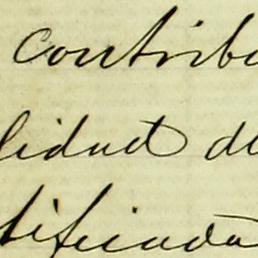 contribu
lidad de
tificada